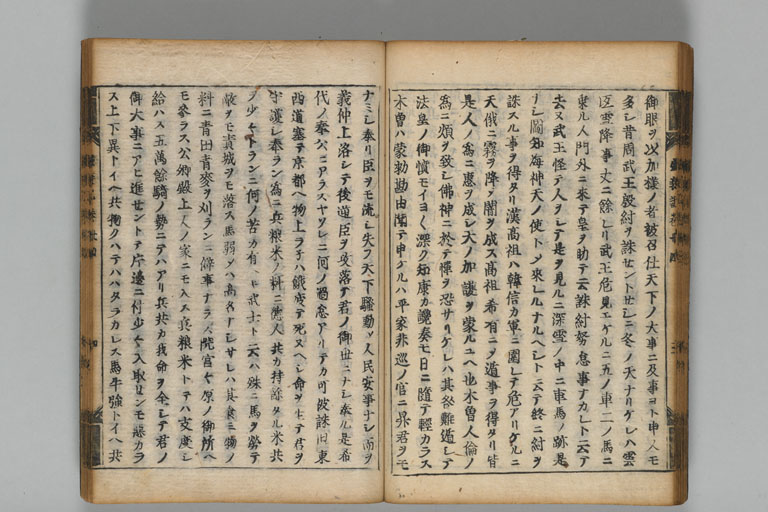 御眼ヲ以加様ノ者被召仕天下ノ大事ニ及事ヨト申人モ
多シ昔周武王殷紂ヲ誅セントセシニ冬ノ天ナリケレハ雲
冱雪降事丈ニ餘レリ武王危見エケルニ五ノ車二ノ馬ニ
乗ル人門外ニ来テ皇ヲ助テ云誅紂努怠事ナカレト云テ
去ヌ武王怪テ人ヲシテ是ヲ見ルニ深雪ノ中ニ車馬ノ跡是
ナシ圖知海神天ノ使トメ來レルナルヘシト云テ終ニ紂ヲ
誅スル事ヲ得タリ漢高祖ハ韓信カ軍ニ圍レテ危アリケルニ
天俄ニ霧ヲ降メ闇ヲ成ス高祖希有ニメ遁事ヲ得タリ皆
是人ノ為ニ惠ヲ成シ天ノ加護ヲ蒙ルユヘ也木曽人倫ノ
為ニ煩ヲ致シ佛神ニ於テ憚ヲ恐サリケレハ其咎難遁シテ
法皇ノ御憤モイヨ〱深ク知康カ讒奏モ日ニ隨テ輕カラス
木曽ハ蒙勅勘由聞テ申ケルハ平家非巡ノ官ニ昇君ヲモ
ナミシ奉リ臣ヲモ流シ失フ天下騒動メ人民安事ナシ而ヲ
義仲上洛シテ後逆臣ヲ攻落テ君ノ御世ニナシ奉ル是希
代ノ奉公ニアラスヤソレニ何ノ過怠アリテカ可被誅旧東
西道塞テ京都ヘ物上ラネハ餓疲テ死ヌヘシ命ヲ生テ君ヲ
守護シ奉ラン為ニ兵粮米ノ料ニ徳人共カ持餘タル米共
ノ少々トランニ何ノ苦カ有ヘキ武士ト云ハ殊ニ馬ヲ勞テ
敵ヲモ責城ヲモ落ス馬弱ケハ高名ナシサレハ其食物ノ
料ニ青田青麥ヲ刈ランニ僻事ナラス院宮々原ノ御所ヘ
モ參ラス公卿殿上人ノ家ニモ入ス兵粮米トテハ支度シ
給ハス五萬餘騎ノ勢ニテハアリ兵共カ我命ヲ全シテ君ノ
御大事ニアヒ進セントテ片邊ニ付少々入取セシモ惡カラ
ス上下異トイヘ共物クハテハハタラカレス馬牛強トイヘ共